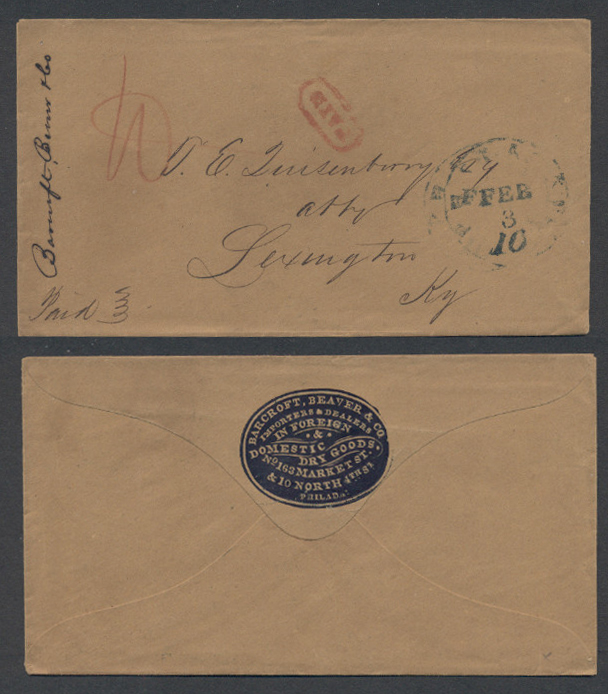 Barcroft, Beaver & Co
PAID
10
T. E. Quisenberry, Esq
atty
Lexington
Ky
Paid 3
FEB
3
10
BARCROFT, BEAVER & CO
IMPORTERS & DEALERS
IN FOREIGN
&
DOMESTIC
DRY GOODS.
No 163 MARKET ST.
& 10 NORTH 4TH ST
PHILADA.